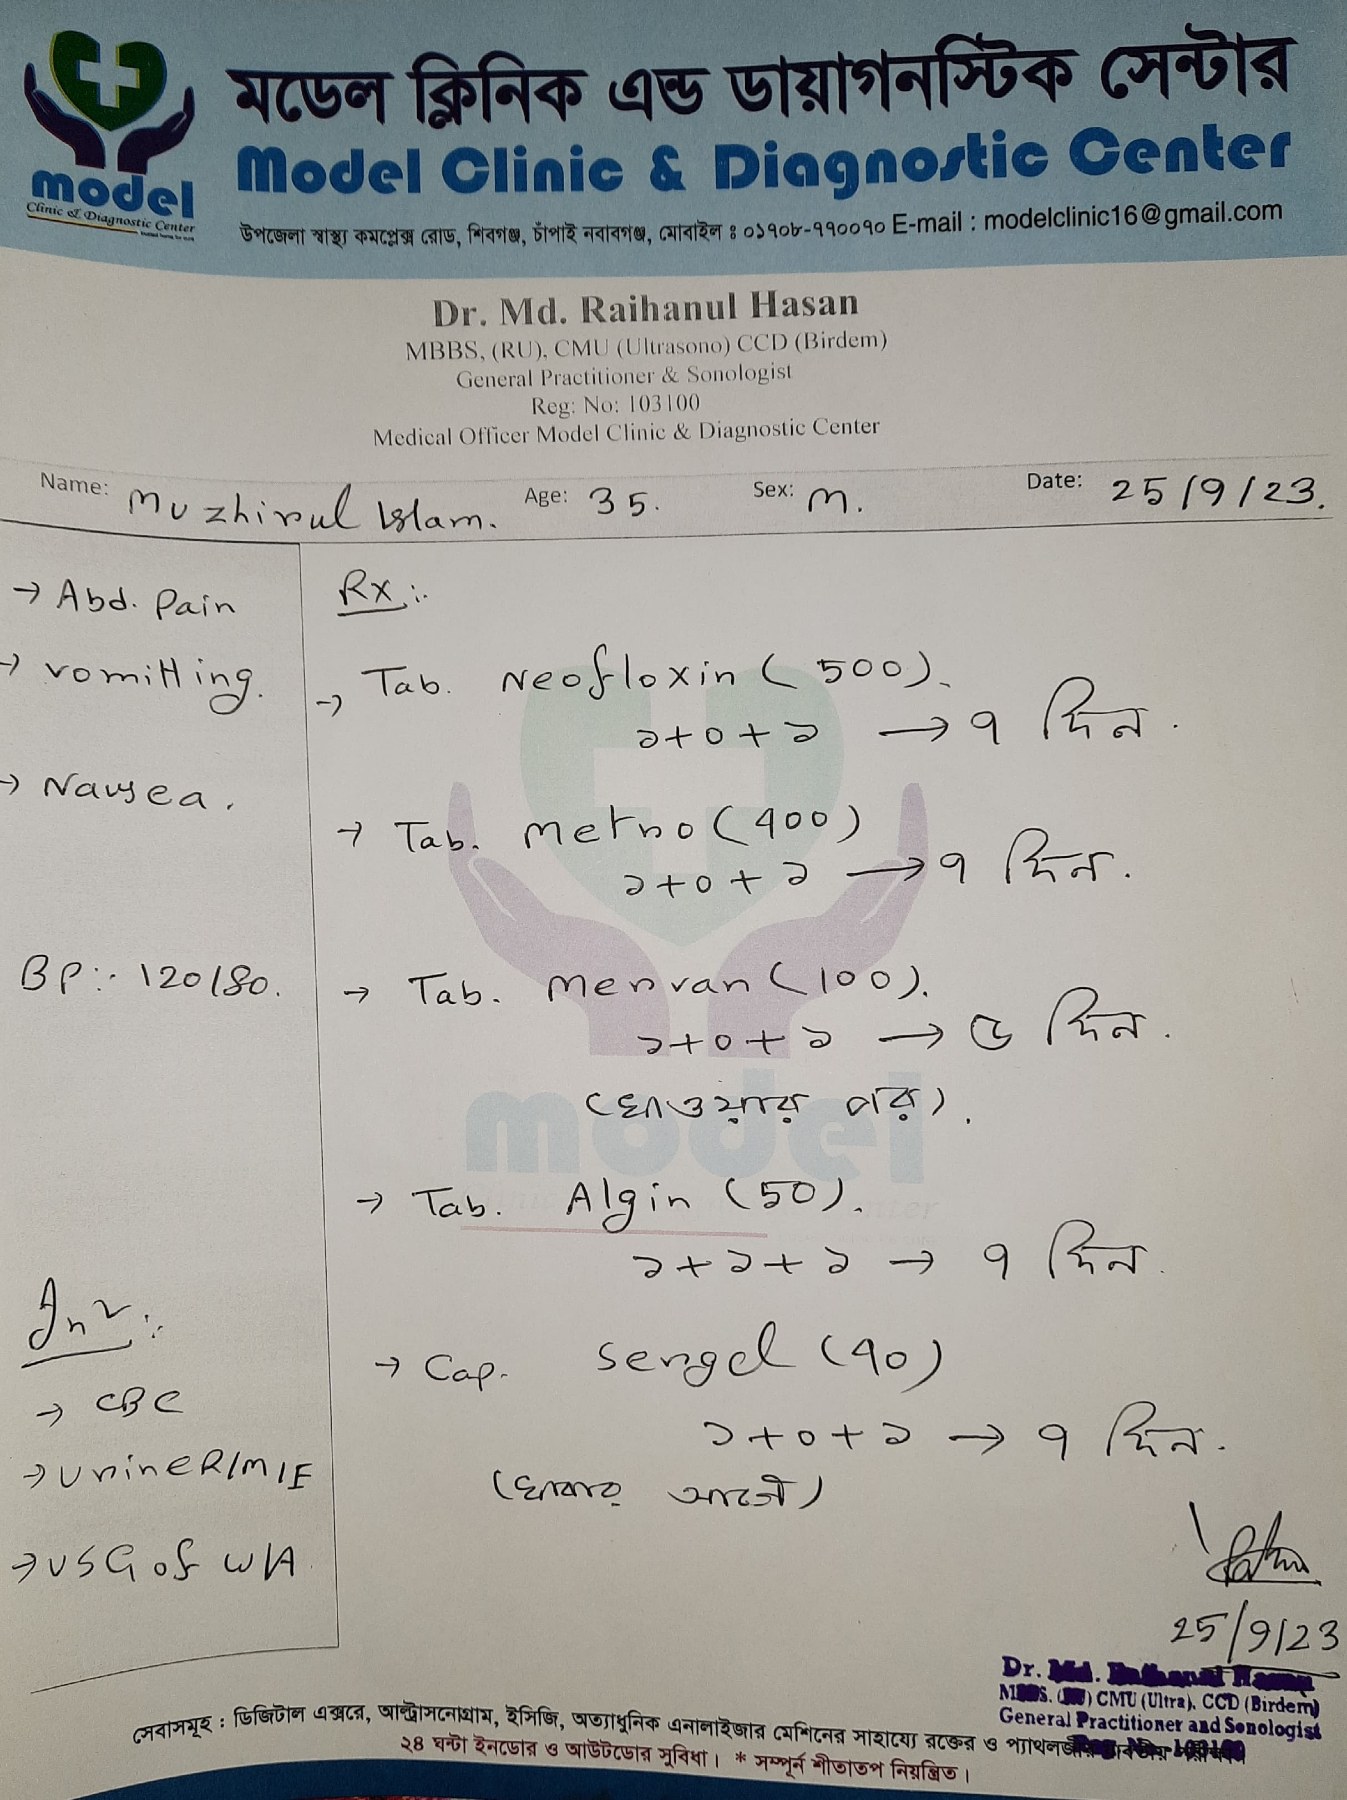 মডেল ক্লিনিক এন্ড ডায়াগনস্টিক সেন্টার
Model Clinic & Diagnostic Center
model
Clinic & Diagnostic Center
উপজেলা স্বাস্থ্য কমপ্লেক্স রোড, শিবগঞ্জ, চাঁপাই নবাবগঞ্জ, মোবাইল ঃ ০১৭০৮-৭৭০০৭০ E-mail : modelclinic16@gmail.com
Dr. Md. Raihanul Hasan
MBBS, (RU), CMU (Ultrasono) CCD (Birdem)
General Practitioner & Sonologist
Reg: No: 103100
Medical Officer Model Clinic & Diagnostic Center
Name: Muzhirul Islam. Age: 35. Sex: M. Date: 25/9/23.
→ Abd. Pain
→ vomitting.
→ Nausea.
BP:- 120/80.
Inv:-
→ CBC
→ Urine R/M/E
→ USG of W/A
Rx:-
→ Tab. Neofloxin (500).
১+০+১ → ৭ দিন.
→ Tab. Metro (400)
১+০+১ → ৭ দিন.
→ Tab. Menvan (100).
১+০+১ → ৫ দিন.
(খাওয়ার পর).
model
→ Tab. Algin (50).
১+১+১ → ৭ দিন.
→ Cap. Sergel (40)
১+০+১ → ৭ দিন.
(খাবার আগে)
25/9/23
Dr. Md. Raihanul Hasan
MBBS. (RU) CMU (Ultra), CCD (Birdem)
General Practitioner and Sonologist
Reg. No-103100
সেবাসমূহ : ডিজিটাল এক্সরে, আল্ট্রাসনোগ্রাম, ইসিজি, অত্যাধুনিক এনালাইজার মেশিনের সাহায্যে রক্তের ও
২৪ ঘন্টা ইনডোর ও আউটডোর সুবিধা। * সম্পূর্ন শীতাতপ নিয়ন্ত্রিত।